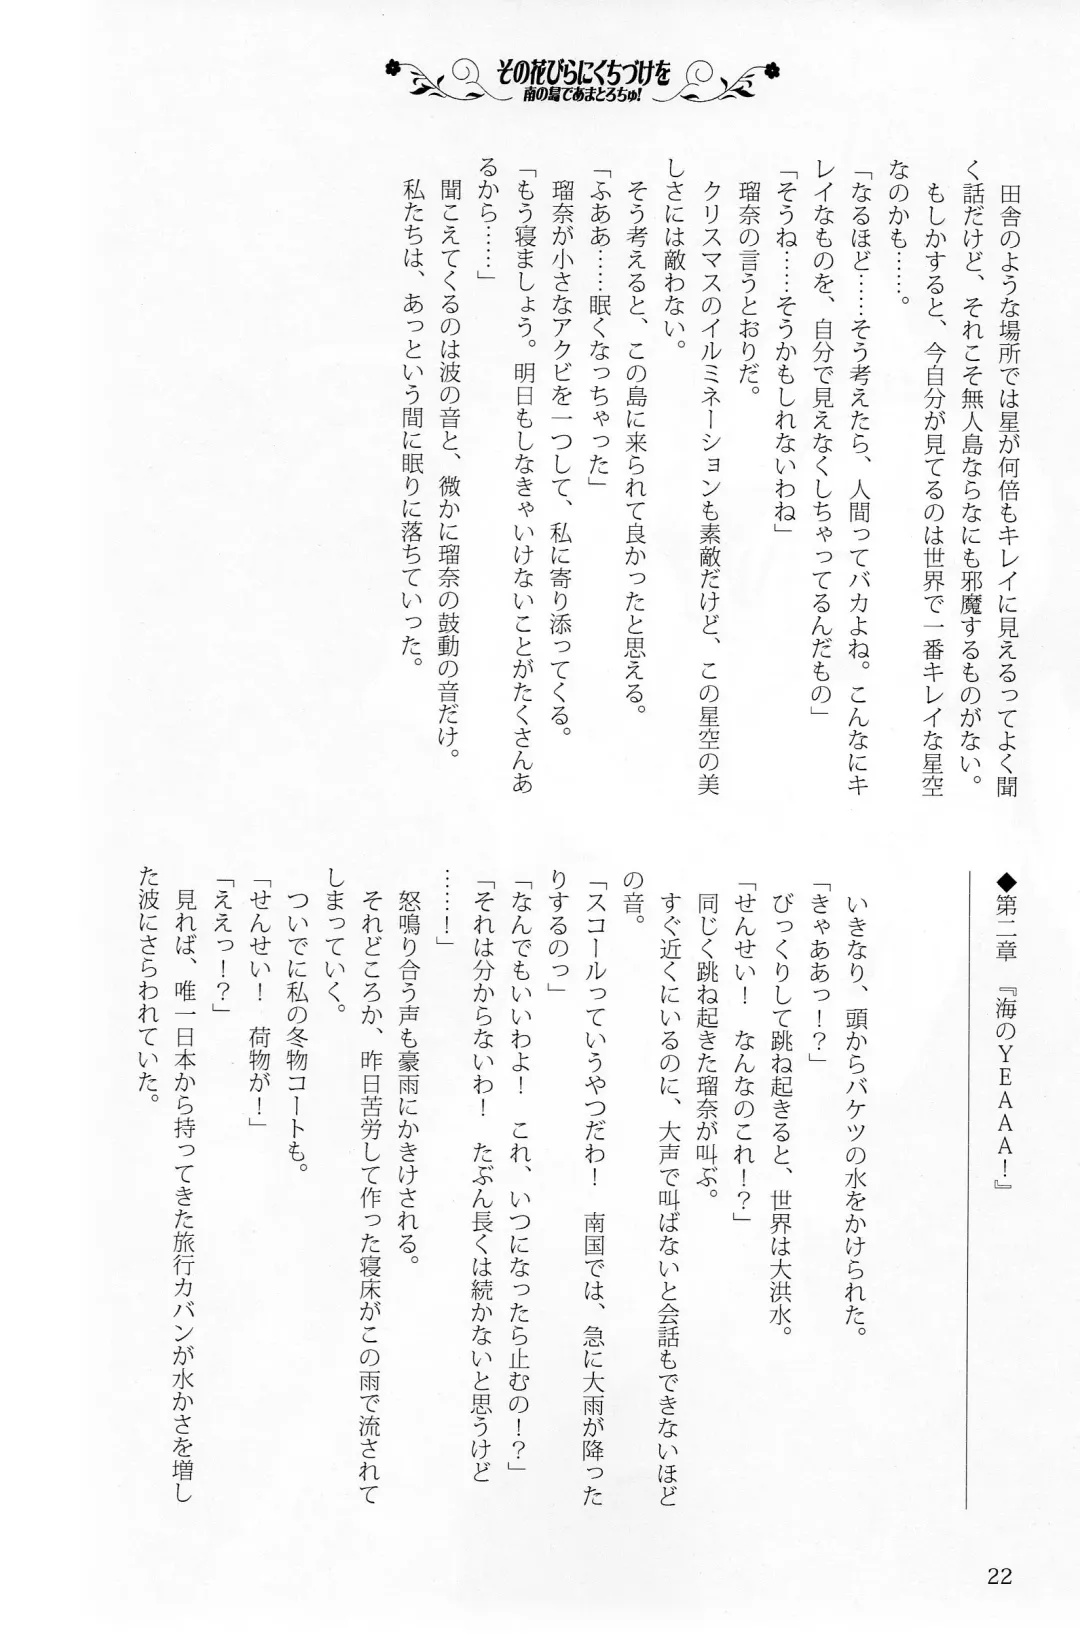 その花びらにくちづけを
南の島であまとろちゅ!
田舎のような場所では星が何倍もキレイに見えるってよく聞
く話だけど、それこそ無人島ならなにも邪魔するものがない。
もしかすると、今自分が見てるのは世界で一番キレイな星空
なのかも……。
「なるほど……そう考えたら、人間ってバカよね。こんなにキ
レイなものを、自分で見えなくしちゃってるんだもの」
「そうね……そうかもしれないわね」
瑠奈の言うとおりだ。
クリスマスのイルミネーションも素敵だけど、この星空の美
しさには敵わない。
そう考えると、この島に来られて良かったと思える。
「ふああ……眠くなっちゃった」
瑠奈が小さなアクビを一つして、私に寄り添ってくる。
「もう寝ましょう。明日もしなきゃいけないことがたくさんあ
るから……」
聞こえてくるのは波の音と、微かに瑠奈の鼓動の音だけ。
私たちは、あっという間に眠りに落ちていった。
◆第二章 『海のYEAAA!』
いきなり、頭からバケツの水をかけられた。
「きゃああっ!?」
びっくりして跳ね起きると、世界は大洪水。
「せんせい! なんなのこれ!?」
同じく跳ね起きた瑠奈が叫ぶ。
すぐ近くにいるのに、大声で叫ばないと会話もできないほど
の音。
「スコールっていうやつだわ! 南国では、急に大雨が降った
りするのっ」
「なんでもいいわよ! これ、いつになったら止むの!?」
「それは分からないわ! たぶん長くは続かないと思うけど
……!」
怒鳴り合う声も豪雨にかきけされる。
それどころか、昨日苦労して作った寝床がこの雨で流されて
しまっていく。
ついでに私の冬物コートも。
「せんせい! 荷物が!」
「ええっ!?」
見れば、唯一日本から持ってきた旅行カバンが水かさを増し
た波にさらわれていた。
22